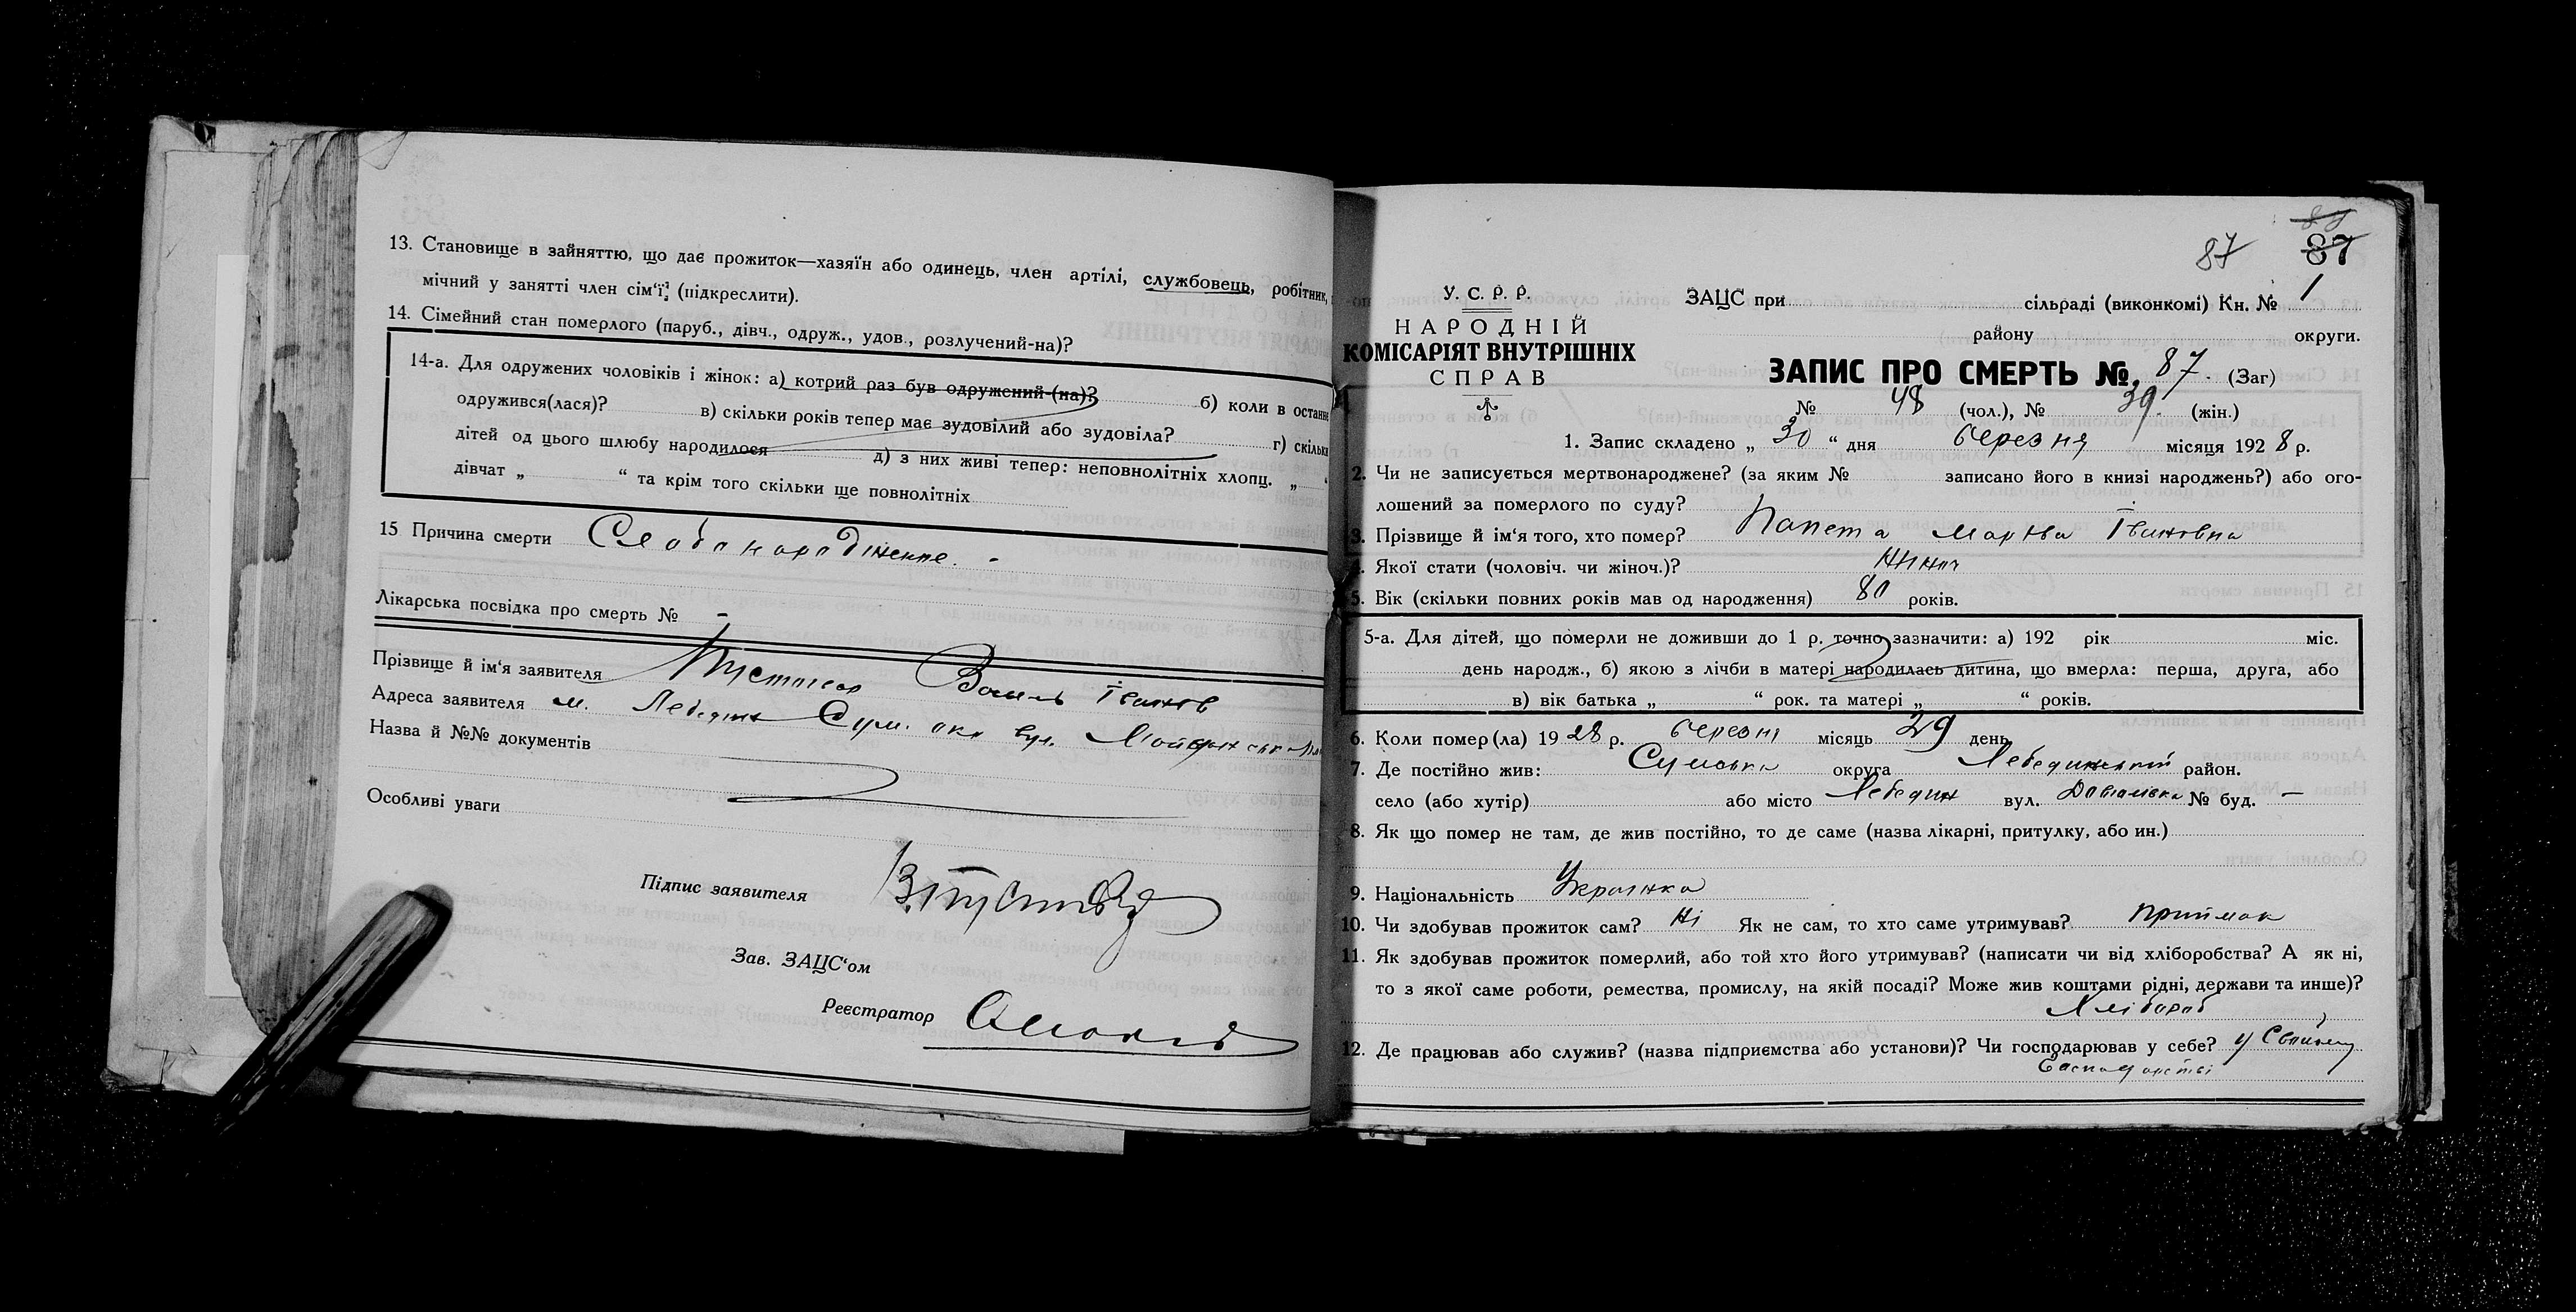 13. Становище в зайняттю, що дає прожиток—хазяїн або одинець, член артілі, службовець, робітник,
мічний у занятті член сім'ї (підкреслити).
14. Сімейний стан померлого (паруб., дівч., одруж., удов., розлучений-на)?
14-а. Для одружених чоловіків і жінок: а) котрий раз був одружений-(на)? б) коли в останнє
одружився(лася)? в) скільки років тепер має зудовілий або зудовіла? г) скільки
дітей од цього шлюбу народилося д) з них живі тепер: неповнолітніх хлопц. „
дівчат „ “ та крім того скільки ще повнолітніх
15 Причина смерти Слабонародження. -
Лікарська посвідка про смерть № –
Прізвище й ім'я заявителя Василь Іванов
Адреса заявителя м. Лебедин Сум. окр вул.
Назва й №№ документів
Особливі уваги
Підпис заявителя
Зав. ЗАЦС'ом
Реєстратор
87 88 87
У. С. Р. Р.
НАРОДНІЙ
КОМІСАРІЯТ ВНУТРІШНІХ
СПРАВ
ЗАЦС при сільраді (виконкомі) Кн. № 1
району округи.
ЗАПИС ПРО СМЕРТЬ № 87. (Заг)
№ 48 (чол.), № 39. (жін.)
1. Запис складено „ 30 “ дня березня місяця 1928 р.
2. Чи не записується мертвонароджене? (за яким № записано його в книзі народжень?) або ого-
лошений за померлого по суду?
3. Прізвище й ім'я того, хто помер? Папета Марья Івановна
4. Якої стати (чоловіч. чи жіноч.)? Жіноч
5. Вік (скільки повних років мав од народження) 80 років.
5-а. Для дітей, що померли не доживши до 1 р. точно зазначити: а) 192 рік міс.
день народж., б) якою з лічби в матері народилась дитина, що вмерла: перша, друга, або
в) вік батька „ “ рок. та матері „ “ років.
6. Коли помер(ла) 1928 р. березня місяць 29 день
7. Де постійно жив: Сумська округа Лебединський район.
село (або хутір) або місто Лебедин вул. № буд. —
8. Як що помер не там, де жив постійно, то де саме (назва лікарні, притулку, або ин.)
9. Національність Українка
10. Чи здобував прожиток сам? Ні Як не сам, то хто саме утримував? приймак
11. Як здобував прожиток померлий, або той хто його утримував? (написати чи від хліборобства? А як ні,
то з якої саме роботи, ремества, промислу, на якій посаді? Може жив коштами рідні, держави та инше)?
Хлібороб
12. Де працював або служив? (назва підприємства або установи)? Чи господарював у себе? у Своїому
Господарстві